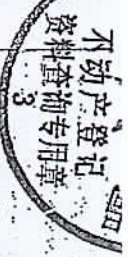 不动产登记
资料查询专用章
3